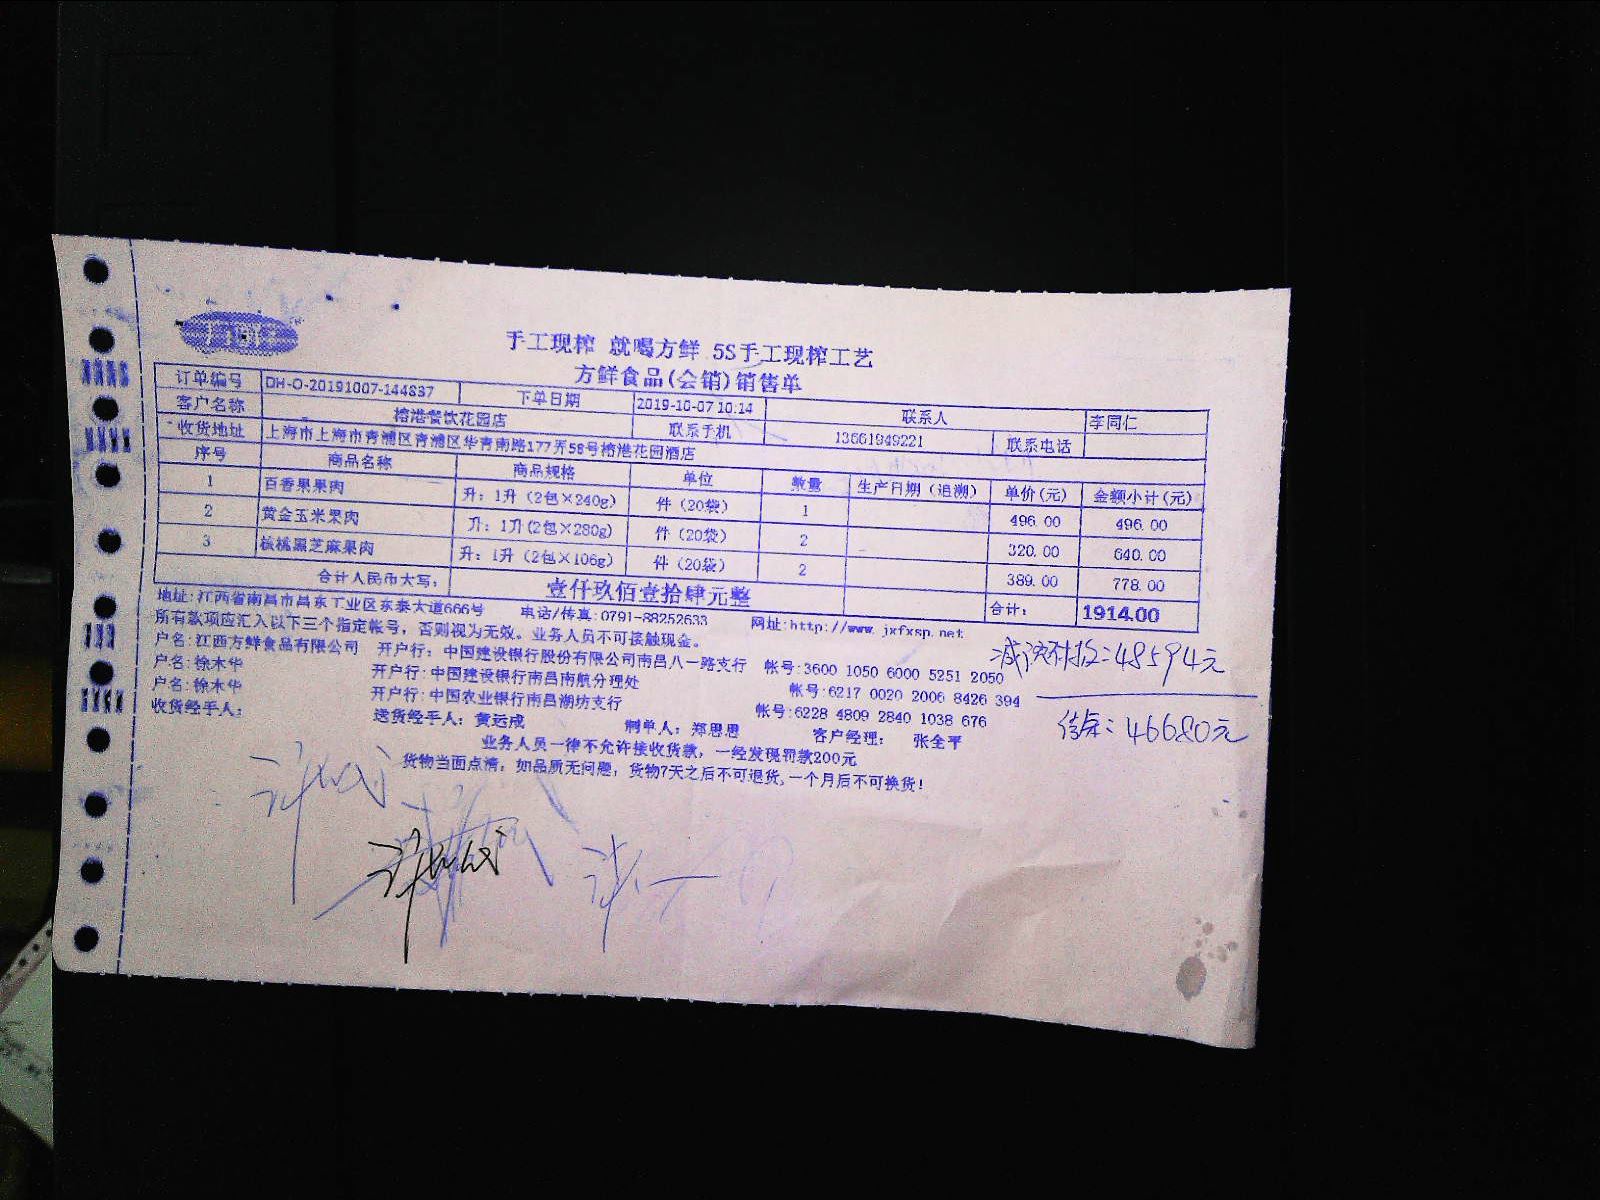 手工现榨 就喝方鲜 5S手工现榨工艺
方鲜食品(会销)销售单
订单编号 DH-O-20191007-144837 下单日期 2019-10-07 10:14 联系人 李同仁
客户名称 榕港餐饮花园店 联系手机 13661949221 联系电话
收货地址 上海市上海市青浦区青浦区华青南路177弄58号榕港花园酒店
序号 商品名称 商品规格 单位 数量 生产日期（追溯） 单价(元) 金额小计(元)
1 百香果果肉 升：1升（2包×240g） 件（20袋） 1 496.00 496.00
2 黄金玉米果肉 升：1升(2包×280g) 件（20袋） 2 320.00 640.00
3 核桃黑芝麻果肉 升：1升（2包×106g） 件（20袋） 2 389.00 778.00
合计人民币大写： 壹仟玖佰壹拾肆元整 合计： 1914.00
地址:江西省南昌市昌东工业区东泰大道666号 电话/传真:0791-88252633 网址:http://www.jxfxsp.net
所有款项应汇入以下三个指定帐号，否则视为无效。业务人员不可接触现金。
户名:江西方鲜食品有限公司 开户行：中国建设银行股份有限公司南昌八一路支行 帐号:3600 1050 6000 5251 2050
户名:徐木华 开户行:中国建设银行南昌南航分理处 帐号:6217 0020 2006 8426 394
户名:徐木华 开户行:中国农业银行南昌湖坊支行 帐号:6228 4809 2840 1038 676
收货经手人： 送货经手人：黄远成 制单人：郑思思 客户经理： 张全平
业务人员一律不允许接收货款，一经发现罚款200元
货物当面点清，如品质无问题，货物7天之后不可退货,一个月后不可换货！
减预付款:48594元
结余：46680元